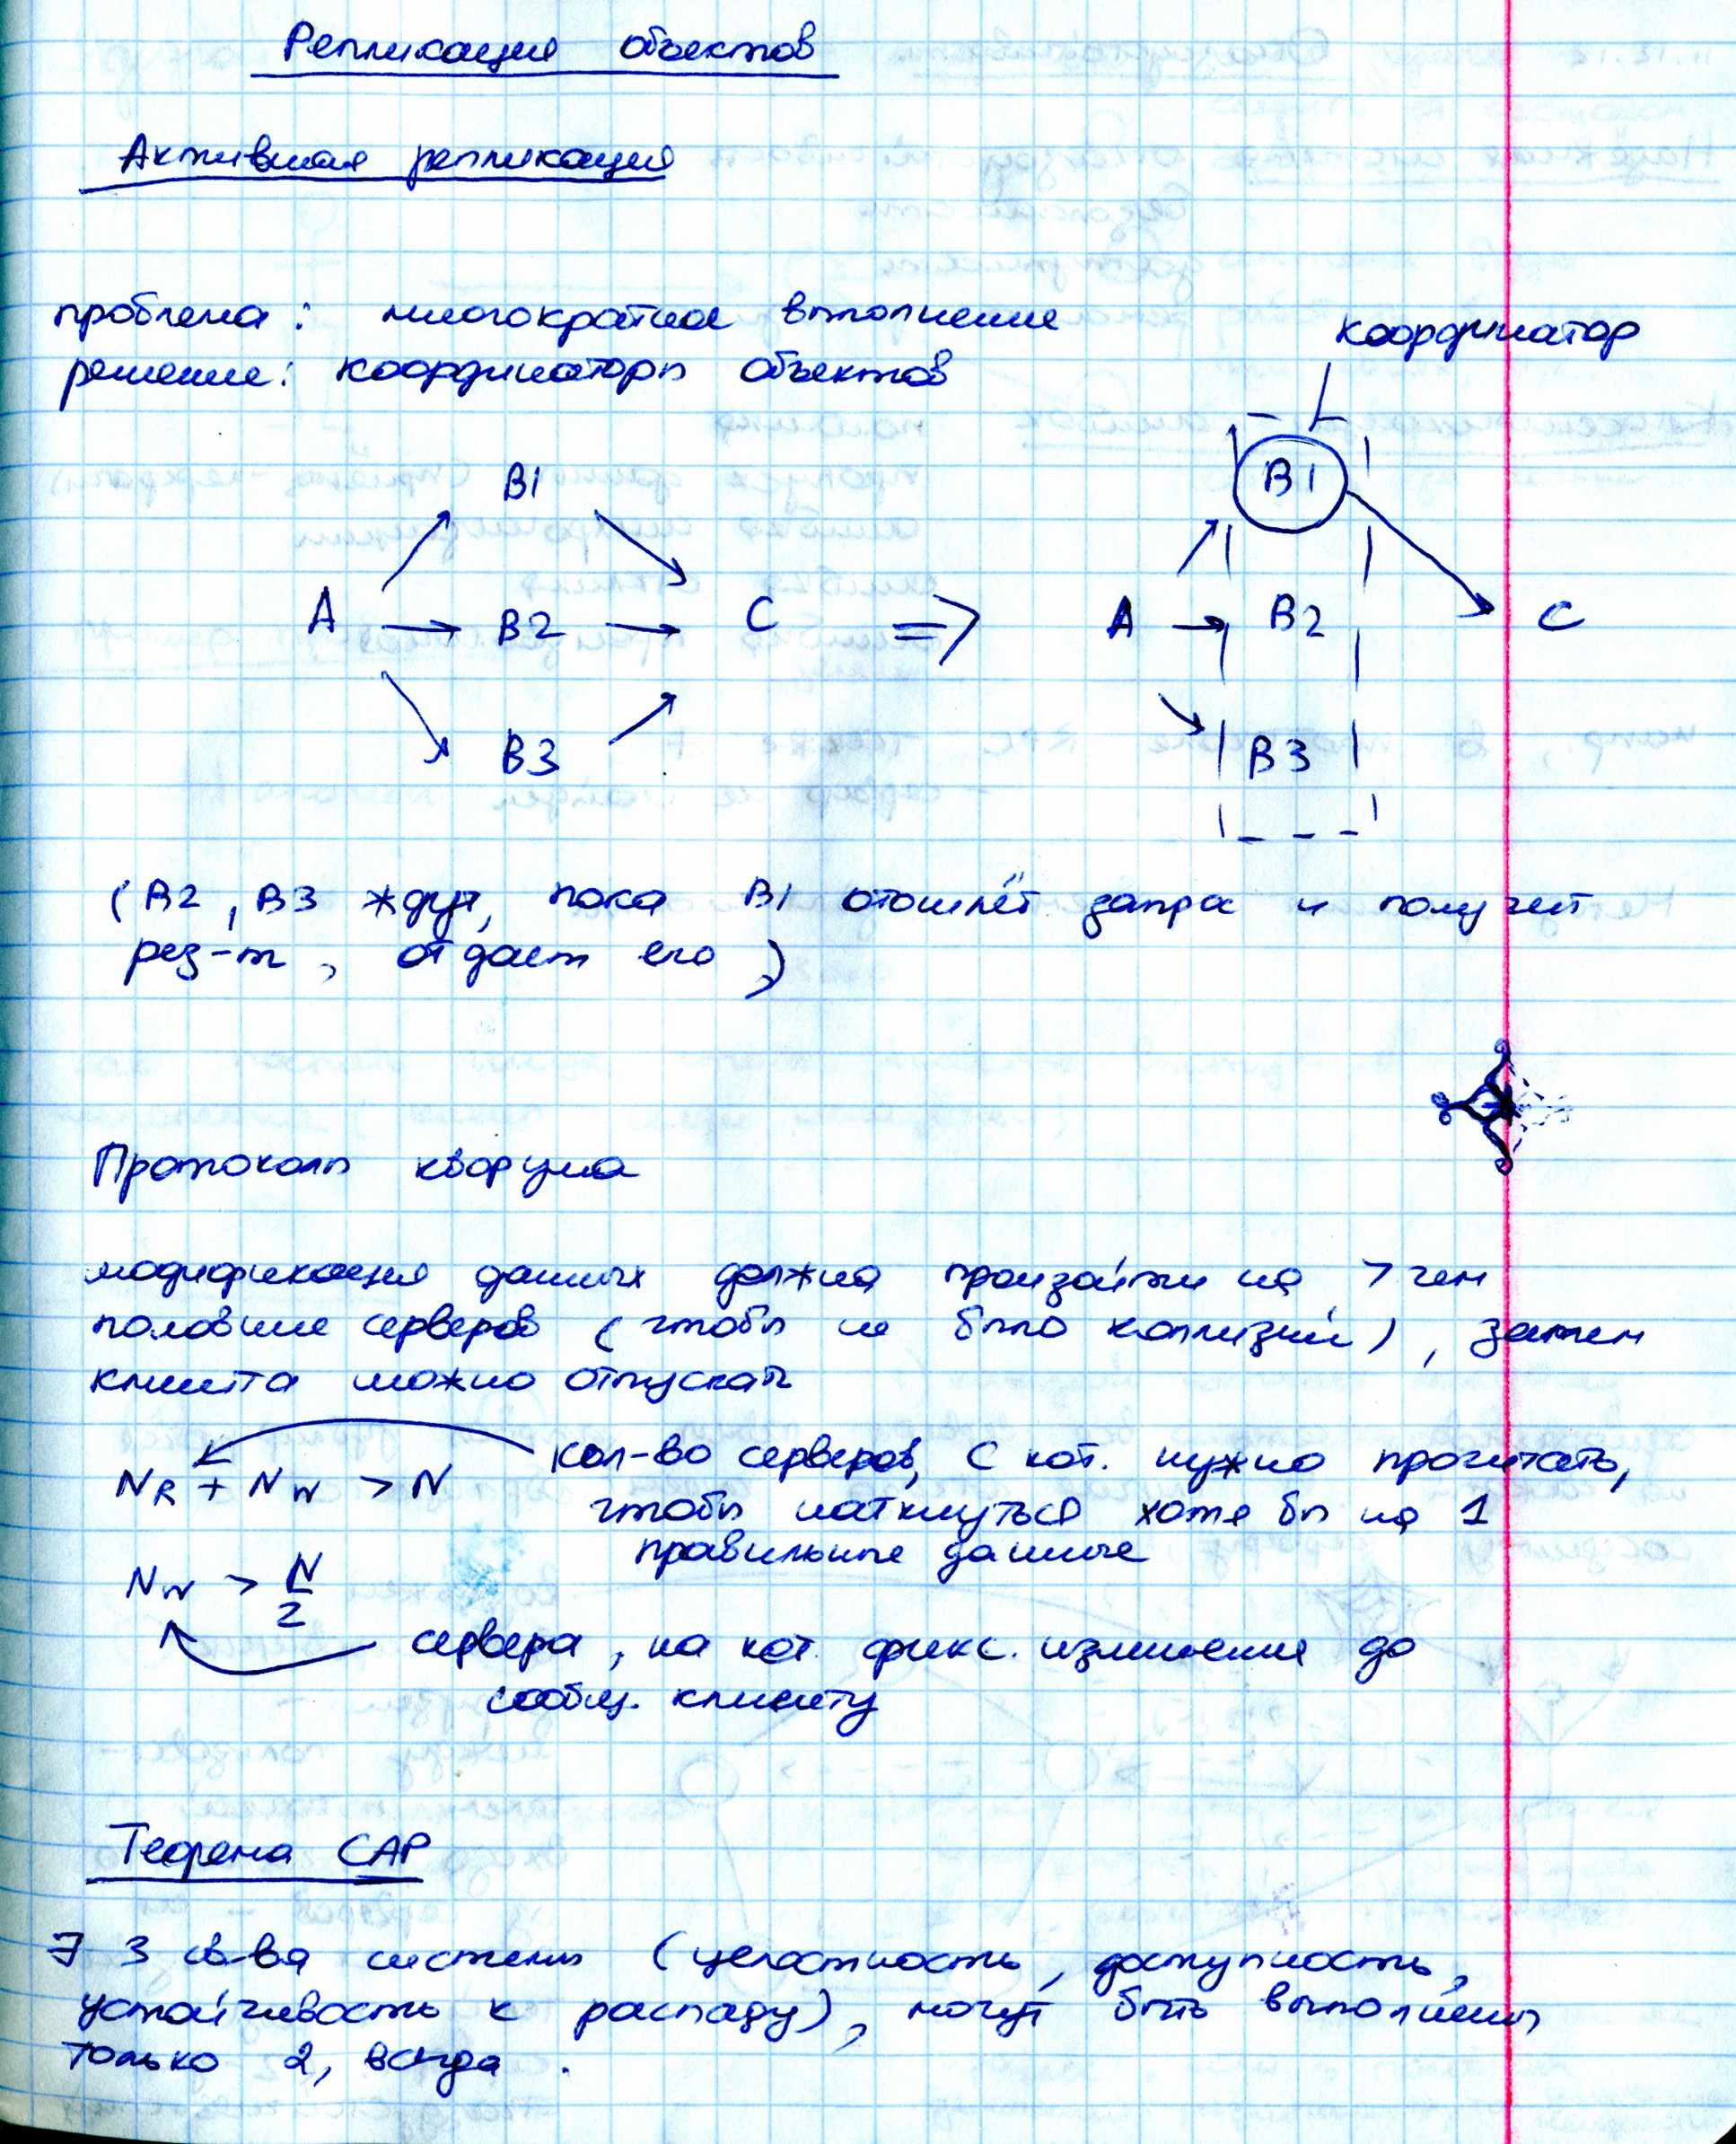 Репликация объектов
Активная репликация
проблема: многократное выполнение
решение: координаторы объектов
координатор
B1
B1
A
B2
C
=>
A
B2
C
B3
B3
(B2, B3 ждут, пока B1 отошлёт запрос и получит
рез-т, отдаст его)
Протоколы кворума
модификация данных должна произойти на > чем
половине серверов (чтобы не было коллизий), затем
клиента можно отпускать
NR + NW > N
кол-во серверов, с кот. нужно прочитать,
чтобы наткнуться хотя бы на 1
правильные данные
NW > N/2
сервера, на кот. фикс. изменения до
сообщ. клиенту
Теорема CAP
∃ 3 св-ва системы (целостность, доступность,
устойчивость к распаду), могут быть выполнены
только 2, всегда.